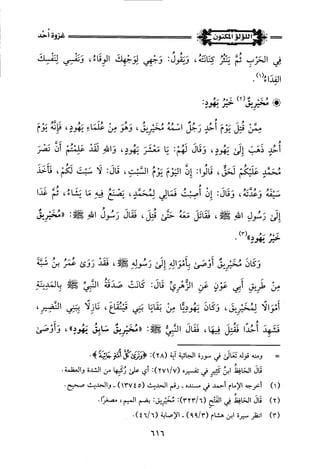 اللؤلؤ المكنون
غزوة أحد
في الحَرْبِ ثُمَّ يَنْثُرُ كِنَانَتَهُ، وَيَقُولُ: وَجْهِي لِوَجْهِكَ الوِقَاءُ، وَنَفْسِي لِنَفْسِكَ
الفِدَاءُ(١).
❋ مُخَيْرِيقُ(٢) خَيْرُ يَهُودٍ:
مِمَّنْ قُتِلَ يَوْمَ أُحُدٍ رَجُلٌ اسْمُهُ مُخَيْرِيقُ، وَهُوَ مِنْ عُلَمَاءِ يَهُودٍ، فَإِنَّهُ يَوْمَ
أُحُدٍ ذَهَبَ إِلَى يَهُودٍ، وَقَالَ لَهُمْ: يَا مَعْشَرَ يَهُودٍ، وَاللهِ لَقَدْ عَلِمْتُمْ أَنَّ نَصْرَ
مُحَمَّدٍ عَلَيْكُمْ لَحَقٌّ، قَالُوا: إِنَّ اليَوْمَ يَوْمُ السَّبْتِ، قَالَ: لَا سَبْتَ لَكُمْ، فَأَخَذَ
سَيْفَهُ وَعُدَّتَهُ، وَقَالَ: إِنْ أُصِبْتُ فَمَالِي لِمُحَمَّدٍ، يَصْنَعُ فِيهِ مَا يَشَاءُ، ثُمَّ غَدَا
إِلَى رَسُولِ اللهِ ﷺ، فَقَاتَلَ مَعَهُ حَتَّى قُتِلَ، فَقَالَ رَسُولُ اللهِ ﷺ: «مُخَيْرِيقُ
خَيْرُ يَهُودٍ»(٣).
وَكَانَ مُخَيْرِيقُ أَوْصَى بِأَمْوَالِهِ إِلَى رَسُولِهِ ﷺ، فَقَدْ رَوَى عُمَرُ بنُ شَبَّةَ
مِنْ طَرِيقِ أَبِي عَوْنٍ عَنِ الزُّهْرِيِّ قَالَ: كَانَتْ صَدَقَةُ النَّبِيِّ ﷺ بِالمَدِينَةِ
أَمْوَالًا لِمُخَيْرِيقَ، وَكَانَ يَهُودِيًّا مِنْ بَقَايَا بَنِي قَيْنُقَاعَ، نَازِلًا بِبَنِي النَّضِيرِ،
فَشَهِدَ أُحُدًا فَقُتِلَ فِيهَا، فَقَالَ النَّبِيُّ ﷺ: «مُخَيْرِيقُ سَابِقُ يَهُودٍ»، وَأَوْصَى
= ومنه قوله تعالى في سورة الجاثية آية (٢٨): ﴿وَتَرَىٰ كُلَّ أُمَّةٍ جَاثِيَةً﴾.
قَالَ الحَافِظُ ابنُ كَثِيرٍ في تفسيره (٢٧١/٧): أي على رُكَبِهَا من الشدة والعظمة.
(١) أخرجه الإمام أحمد في مسنده - رقم الحديث (١٣٧٤٥) - والحديث صحيح.
(٢) قَالَ الحَافِظُ في الفَتْحِ (٣٢٣/٦): مُخَيْرِيقُ: بضم الميم، مصغرًا.
(٣) انظر سيرة ابن هشام (٩٩/٣) - الإصابة (٤٦/٦).
٦١٦